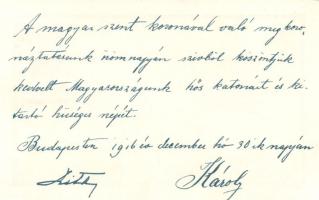 A magyar szent koronával való megkoro-
náztatásunk örömnapján szívből köszöntjük
kedvelt Magyarországunk hős katonáit és ki-
tartó hűséges népét.
Budapesten 1916 év december hó 30ik napján
Zita Károly